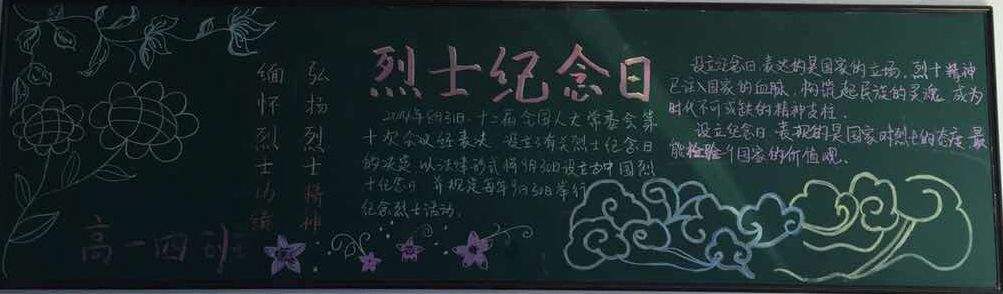 烈士纪念日
弘扬烈士精神
缅怀烈士功绩
2014年8月31日,十二届全国人大常委会第
十次会议经表决,设立了有关烈士纪念日
的决定,以法律形式将9月30日设立为中国烈
士纪念日,并规定每年9月30日举行
纪念烈士活动。
设立纪念日表达的是国家的立场,烈士精神
已注入国家的血脉,构筑起民族的灵魂,成为
时代不可或缺的精神支柱。
设立纪念日,表现的是国家对烈士的态度,最
能检验一个国家的价值观。
高一四班